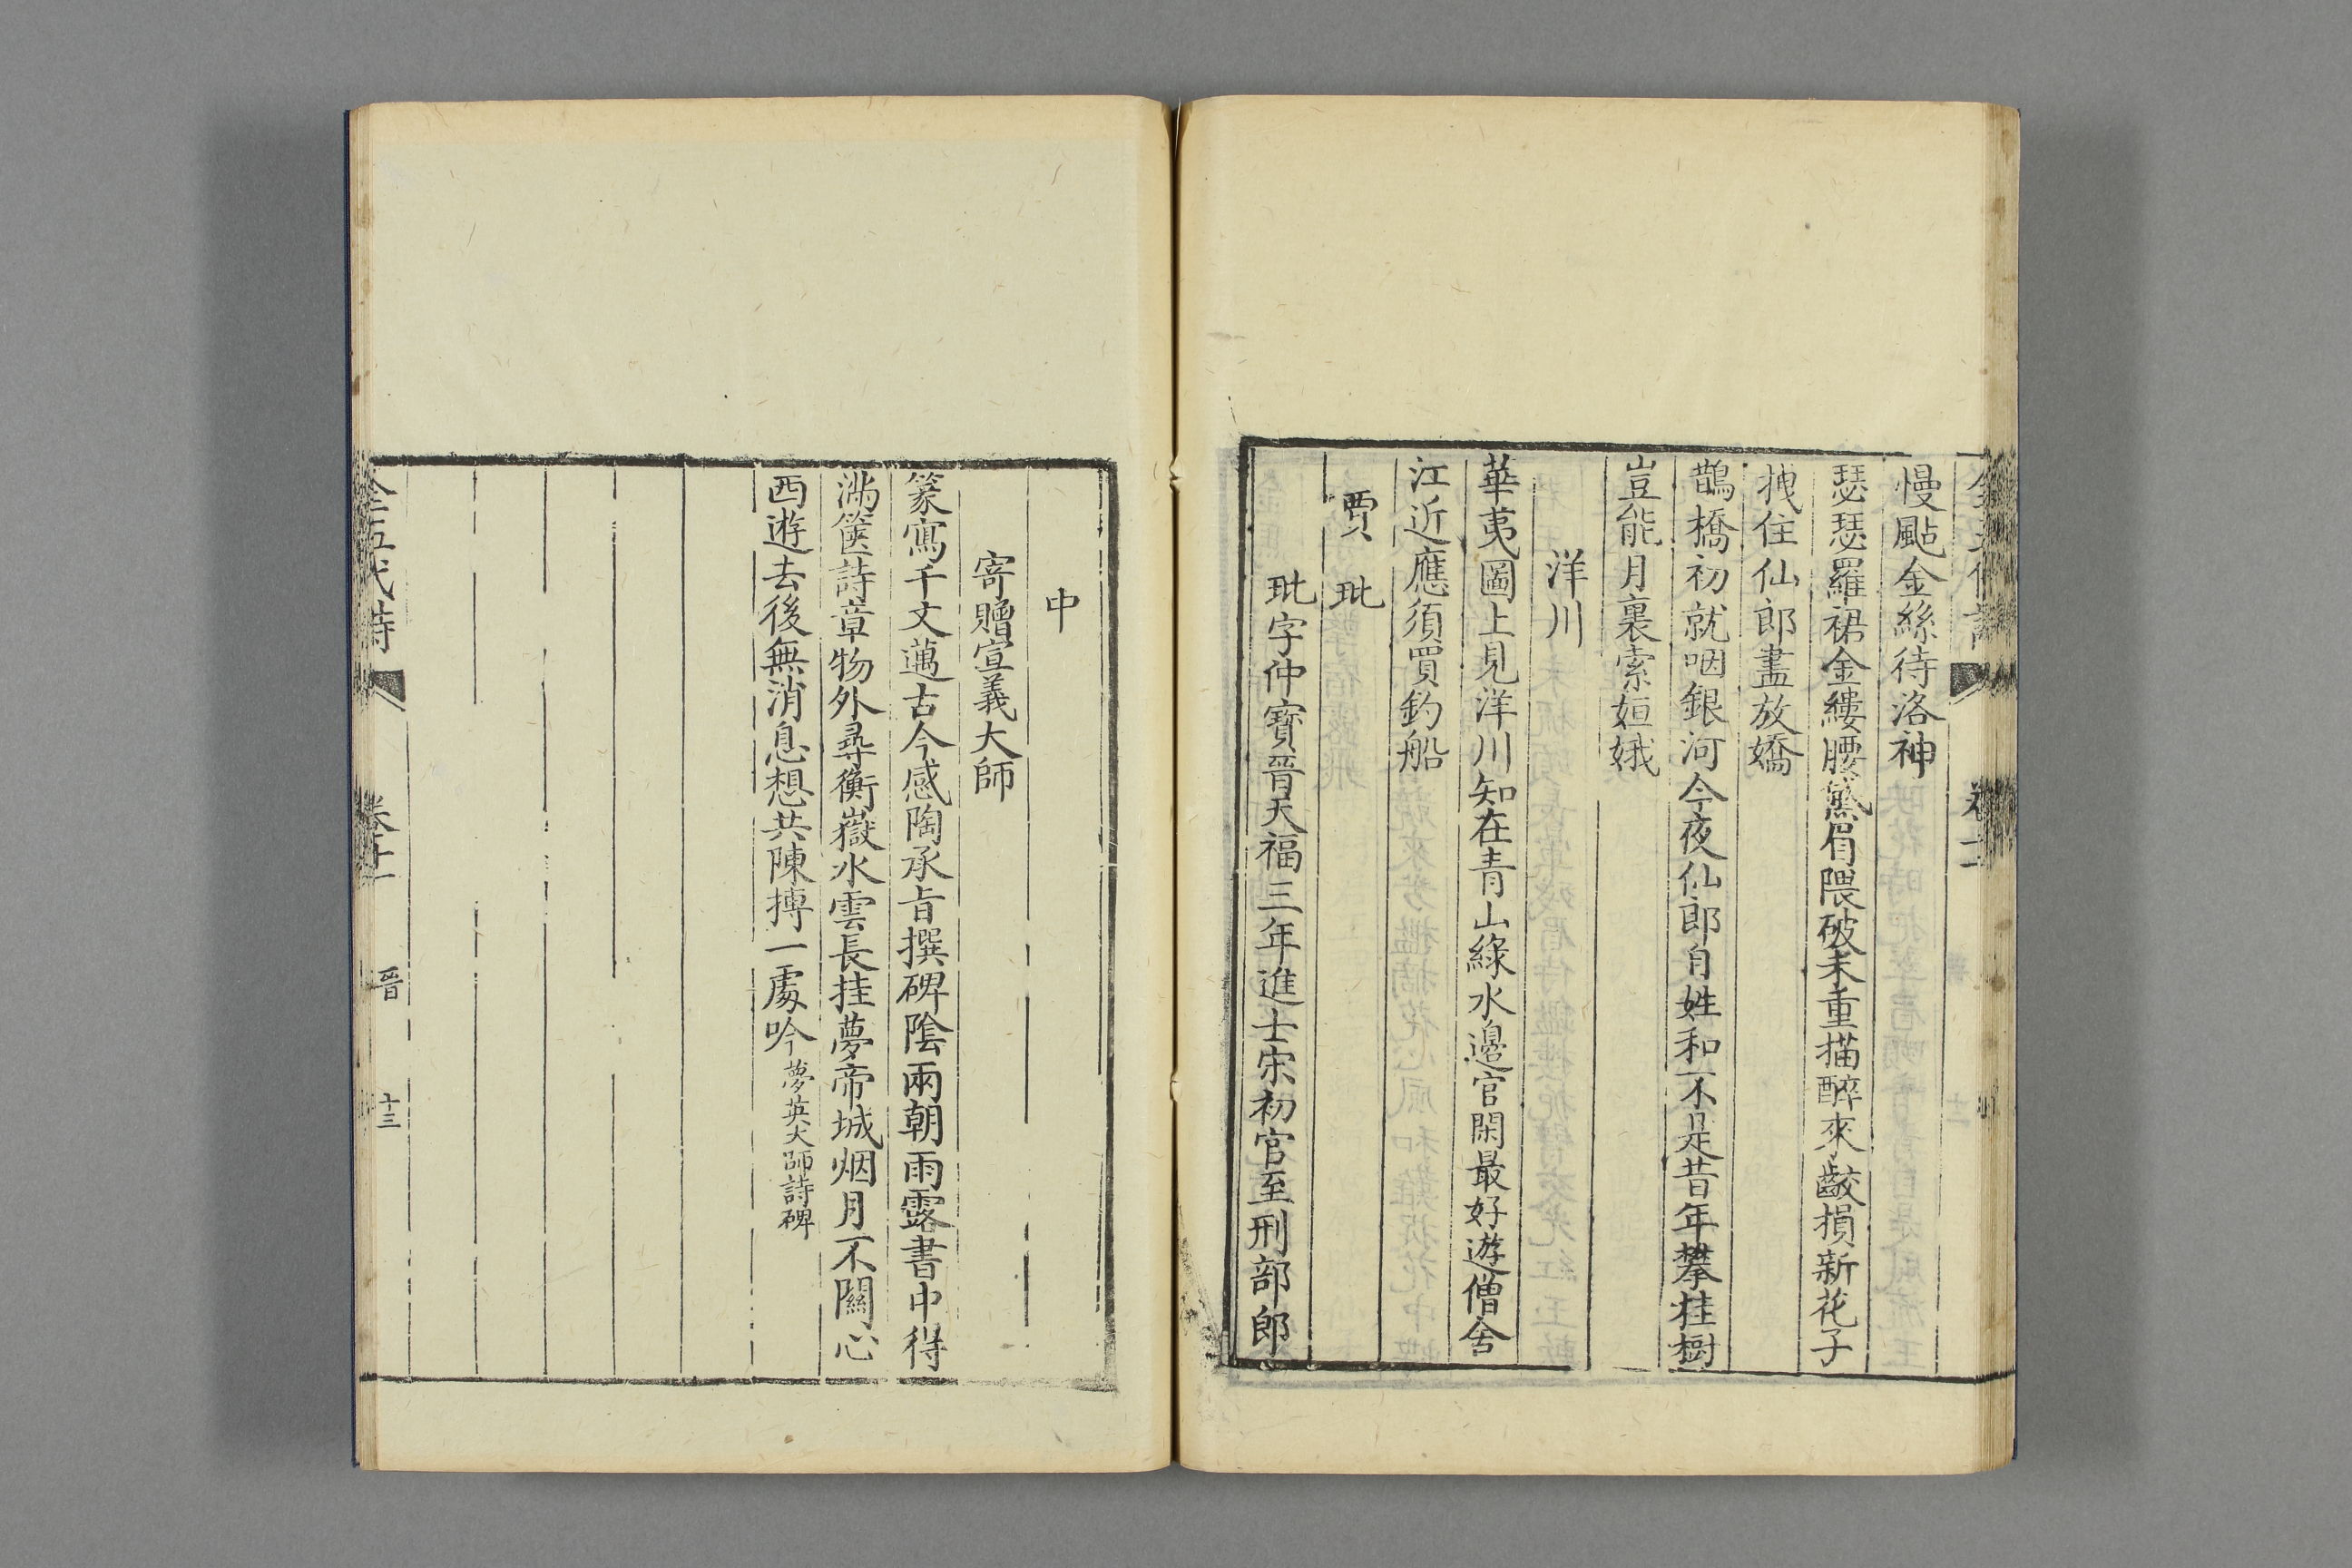 慢颭金絲待洛神
瑟瑟羅裙金縷腰黛眉隈破未重描醉來齩損新花子
拽住仙郎盡放嬌
鵲橋初就咽銀河今夜仙郎自姓和不是昔年攀桂樹
豈能月裏索姮娥
洋川
華夷圖上見洋川知在青山綠水邊官閑最好遊僧舍
江近應須買釣船
賈玭
玭字仲寶晉天福三年進士宋初官至刑部郎
中
寄贈宣義大師
篆寫千文邁古今感陶承旨撰碑陰兩朝雨露書中得
滿篋詩章物外尋衡嶽水雲長挂夢帝城烟月不關心
西遊去後無消息想共陳摶一處吟夢英大師詩碑
全五代詩 卷十一 晉 十三